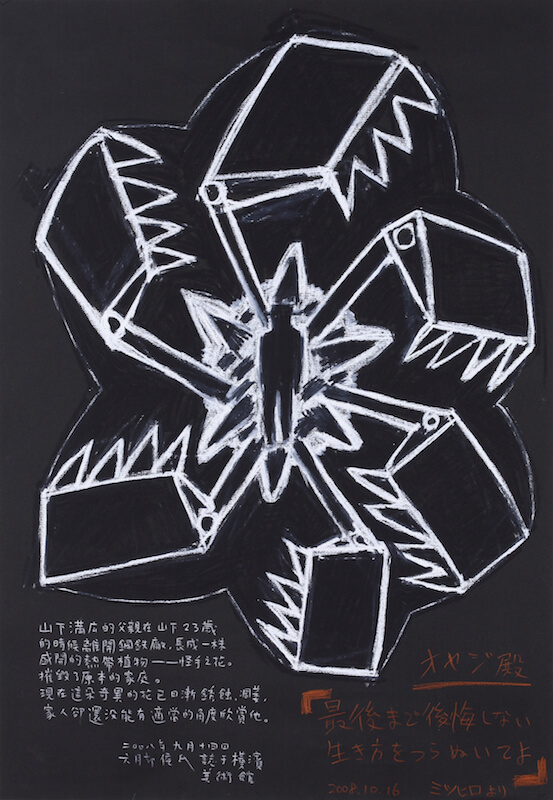 山下滿広的父親在山下23歲
的時候離開鋼鉄廠,長成一株
盛開的熱帶植物——怪手之花。
摧毀了原本的家庭。
現在這朵奇異的花已日漸銹蝕、凋萎,
家人卻還沒能有適當的角度欣賞他。
二〇〇八年九月十四日
於橫濱
美術館
オヤジ殿
「最後まで後悔しない
生き方をつらぬいてよ」
2008.10.16 ミツヒロより